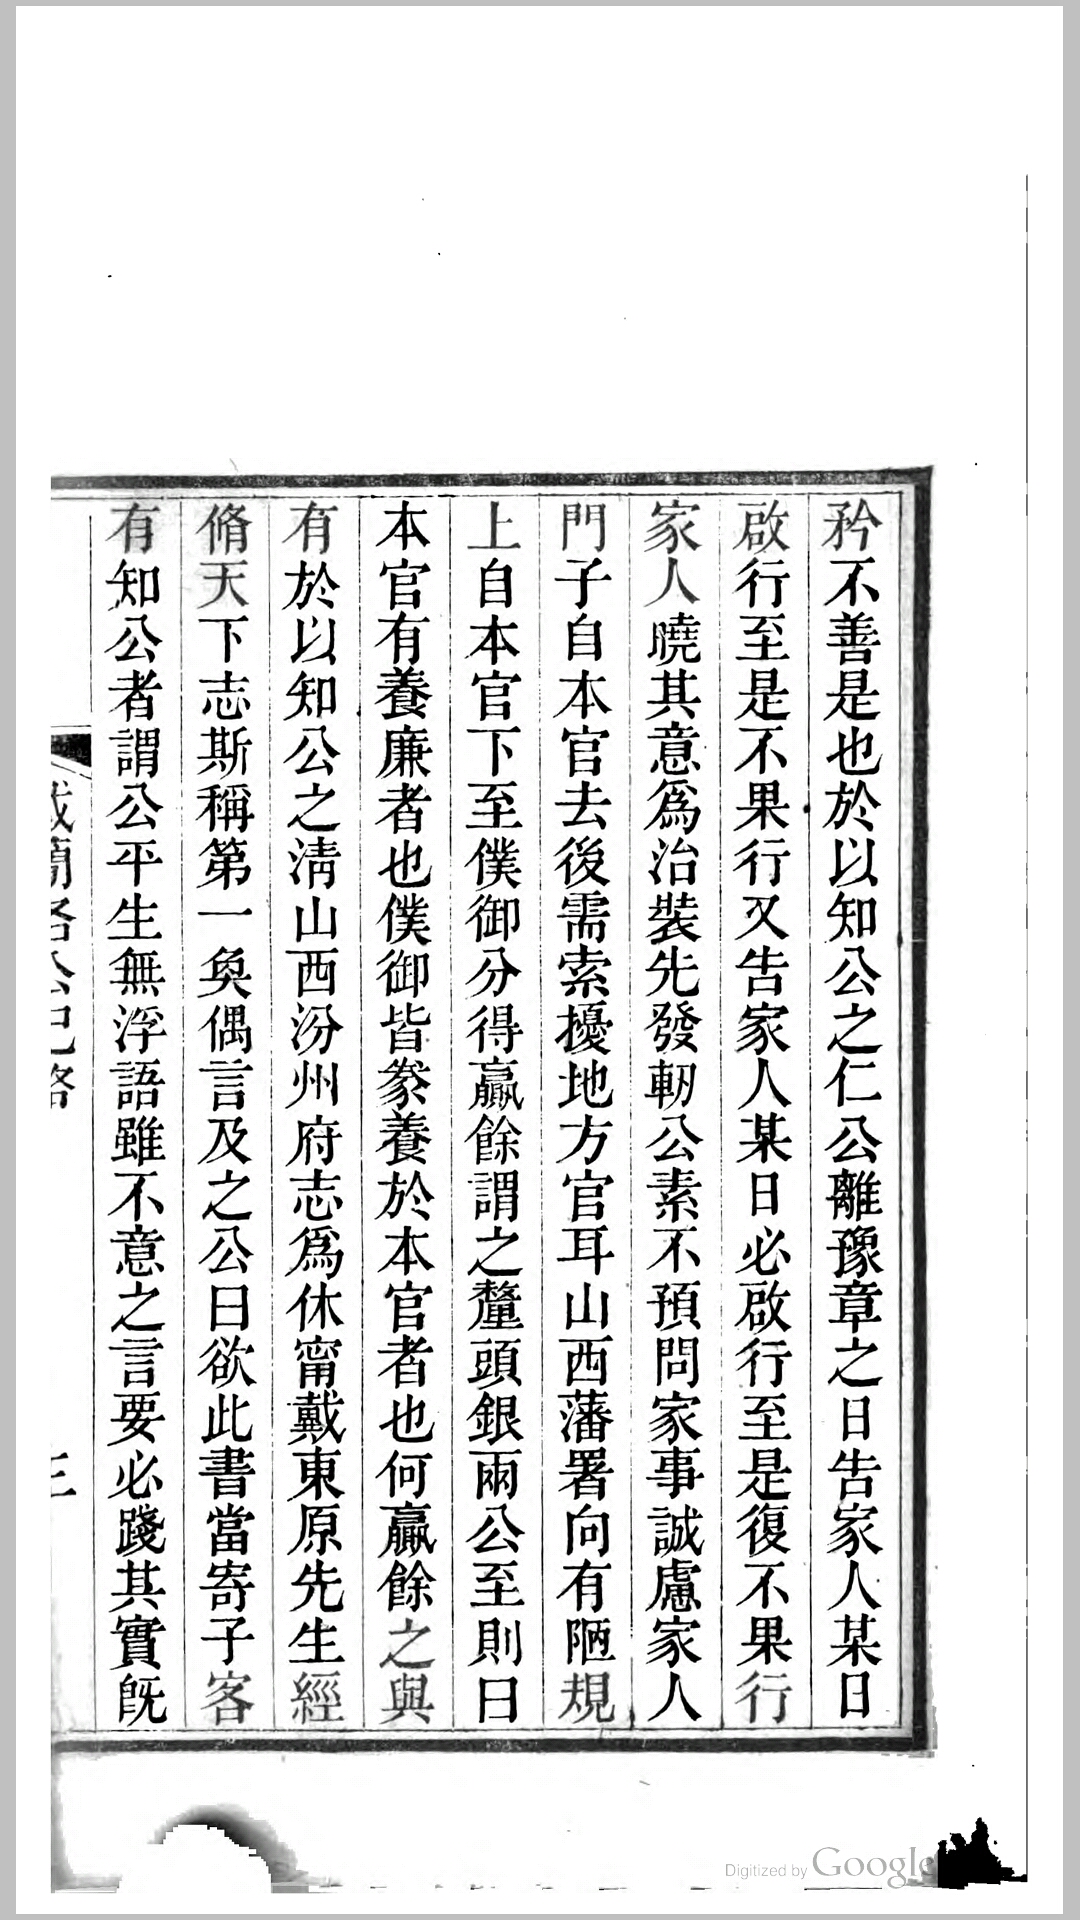 矜不善是也於以知公之仁公離豫章之日告家人某日
啟行至是不果行又告家人某日必啟行至是復不果行
家人曉其意爲治裝先發軔公素不預問家事誠慮家人
門子自本官去後需索擾地方官耳山西藩署向有陋規
上自本官下至僕御分得贏餘謂之釐頭銀兩公至則曰
本官有養廉者也僕御皆豢養於本官者也何贏餘之與
有於以知公之清山西汾州府志爲休甯戴東原先生經
脩天下志斯稱第一矣偶言及之公曰欲此書當寄子客
有知公者謂公平生無浮語雖不意之言要必踐其實旣
三
Digitized by Google